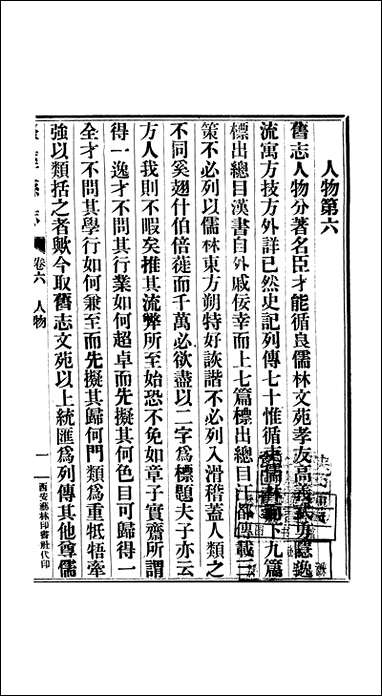 人物第六
舊志人物分著名臣才能循良儒林文苑孝友高義武勇隱逸
流寓方技方外詳已然史記列傳七十惟循吏儒林而下九篇
標出總目漢書自外戚佞幸而上七篇標出總目江都傳載三
策不必列以儒林東方朔特好詼諧不必列入滑稽蓋人類之
不同奚翅什伯倍蓰而千萬必欲盡以二字爲標題夫子亦云
方人我則不暇矣推其流弊所至始恐不免如章子實齋所謂
得一逸才不問其行業如何超卓而先擬其何色目可歸得一
全才不問其學行如何兼至而先擬其歸何門類爲重牴牾牽
強以類括之者歟今取舊志文苑以上統匯爲列傳其他尊儒
縣志
卷六 人物
一
西安藝林印書社代印